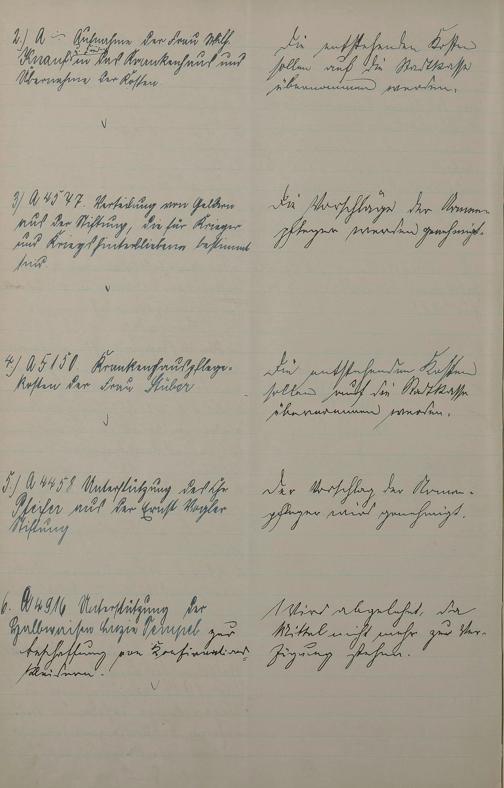 2.) A – Aufnahme der Frau Wilh.
Knauf in das Krankenhaus und
Übernahme der Kosten
Die entstehenden Kosten
sollen auf die Stadtkasse
übernommen werden.
3) A 4547. Verteilung von Geldern
aus der Stiftung, die für Krieger
und Kriegshinterbliebene bestimmt
sind.
Die Vorschläge der Armen-
pfleger werden genehmigt.
4.) A 5150 Krankenhauspflege-
kosten der Frau Stüber
Die entstehenden Kosten
sollen auf die Stadtkasse
übernommen werden.
5.) A 4458 Unterstützung des
Pfeifer aus der Ernst Vogler
Stiftung
Der Vorschlag der Armen-
pfleger wird genehmigt.
6. A 4916 Unterstützung der
Halbwaisen Tempel zur
Beschaffung von Konfirmations-
kleidern.
Wird abgelehnt, da
Mittel nicht mehr zur Ver-
fügung stehen.